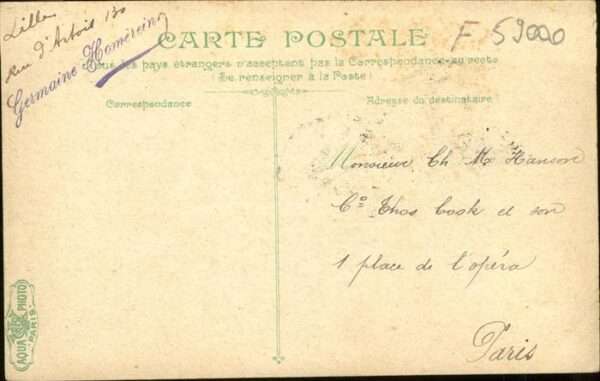 Lille
Rue d'Artois 130
Germaine Homérin
F 59000
CARTE POSTALE
Tous les pays étrangers n'acceptent pas la Correspondance au recto
(Se renseigner à la Poste)
Correspondance
Adresse du destinataire
Monsieur Ch M Hansore
Co Thos Cook et son
1 place de l'opéra
Paris
AQUA PHOTO
PARIS